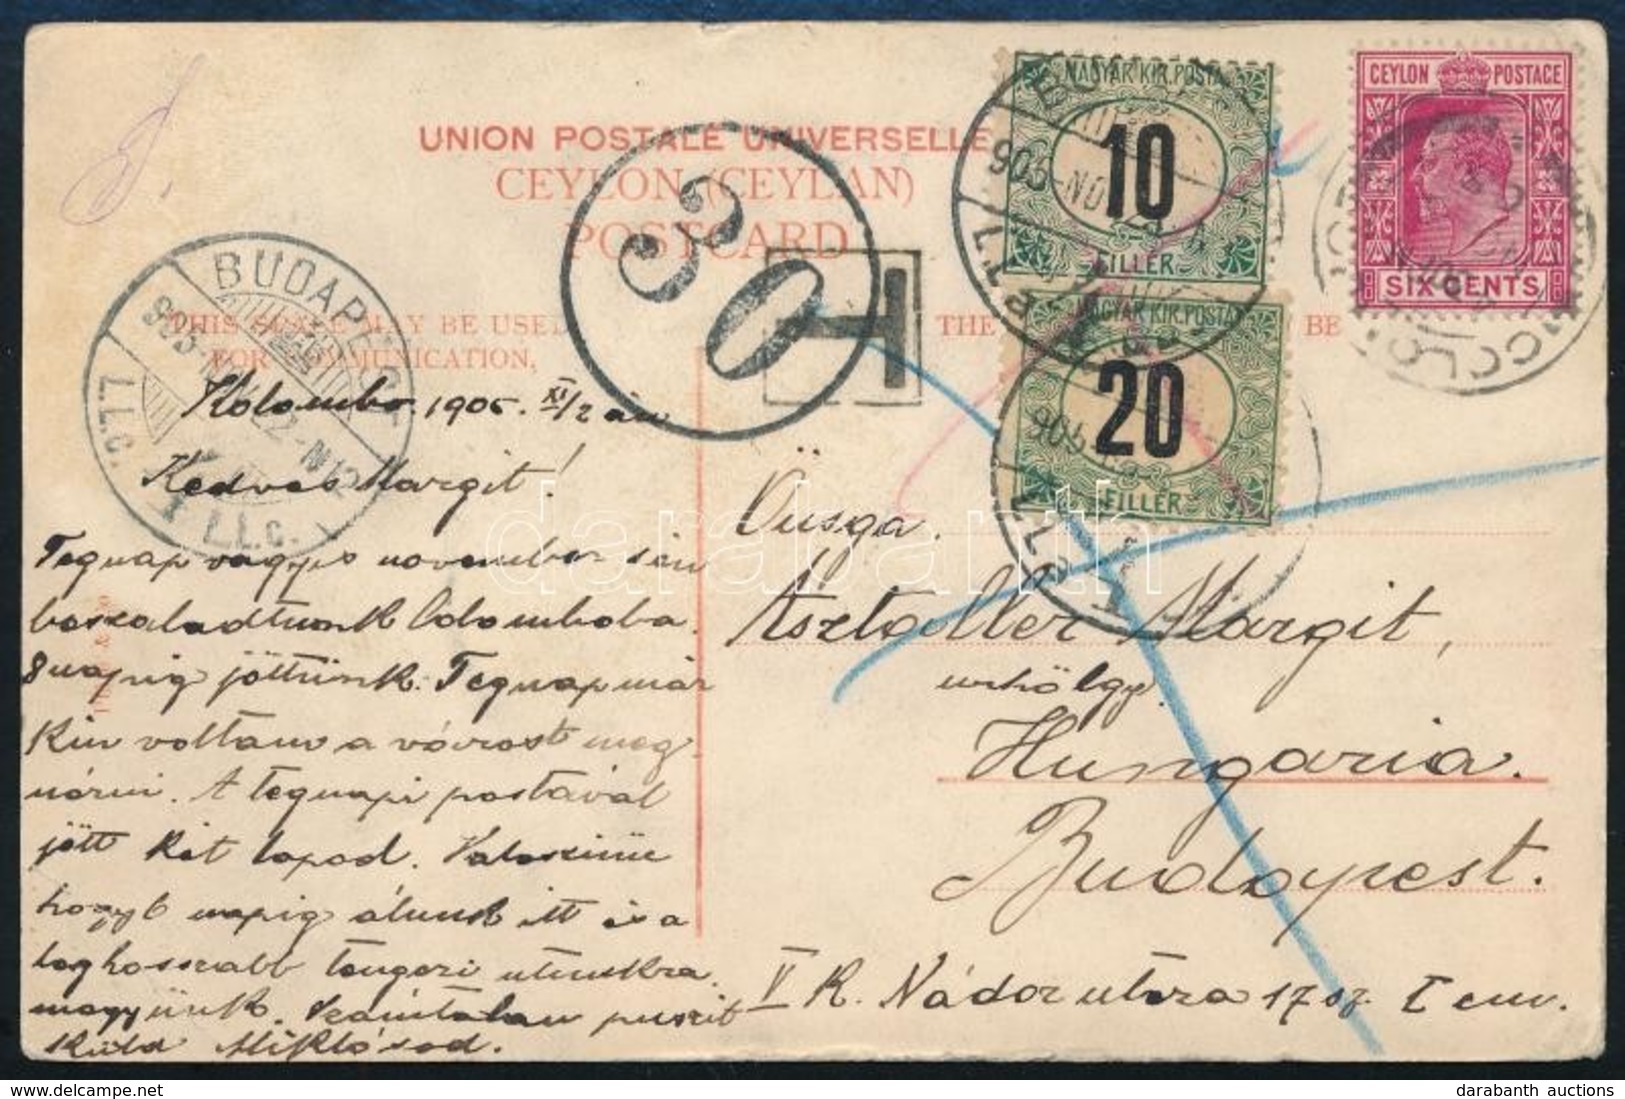 UNION POSTALE UNIVERSELLE
CEYLON (CEYLAN)
POSTCARD
THIS SPACE MAY BE USED
FOR COMMUNICATION,
THE
BE
30
T
MAGYAR KIR. POSTA
10
FILLÉR
MAGYAR KIR. POSTA
20
FILLÉR
CEYLON POSTAGE
SIX CENTS
BUDAPEST
Kolombo. 1905. XI/2 án
Kedves Margit!
Tegnap vagyis november 1 én
boszaladtunk Colomboba.
8 napig jöttünk. Tegnap már
kin voltam a várost meg
nézni. A tegnapi postával
jött két lapod. Valoszinü
hogy 6 napig álunk itt és a
leghosszabb tengeri utunkra
megyünk. Számtalan puszit
küld Miklósod.
Üsga.
Asztaller Margit,
urhölgy
Hungaria.
Budapest.
V K. Nádor utcza 17 sz. I em.
darabanth
www.darabanth.com
darabanth auctions